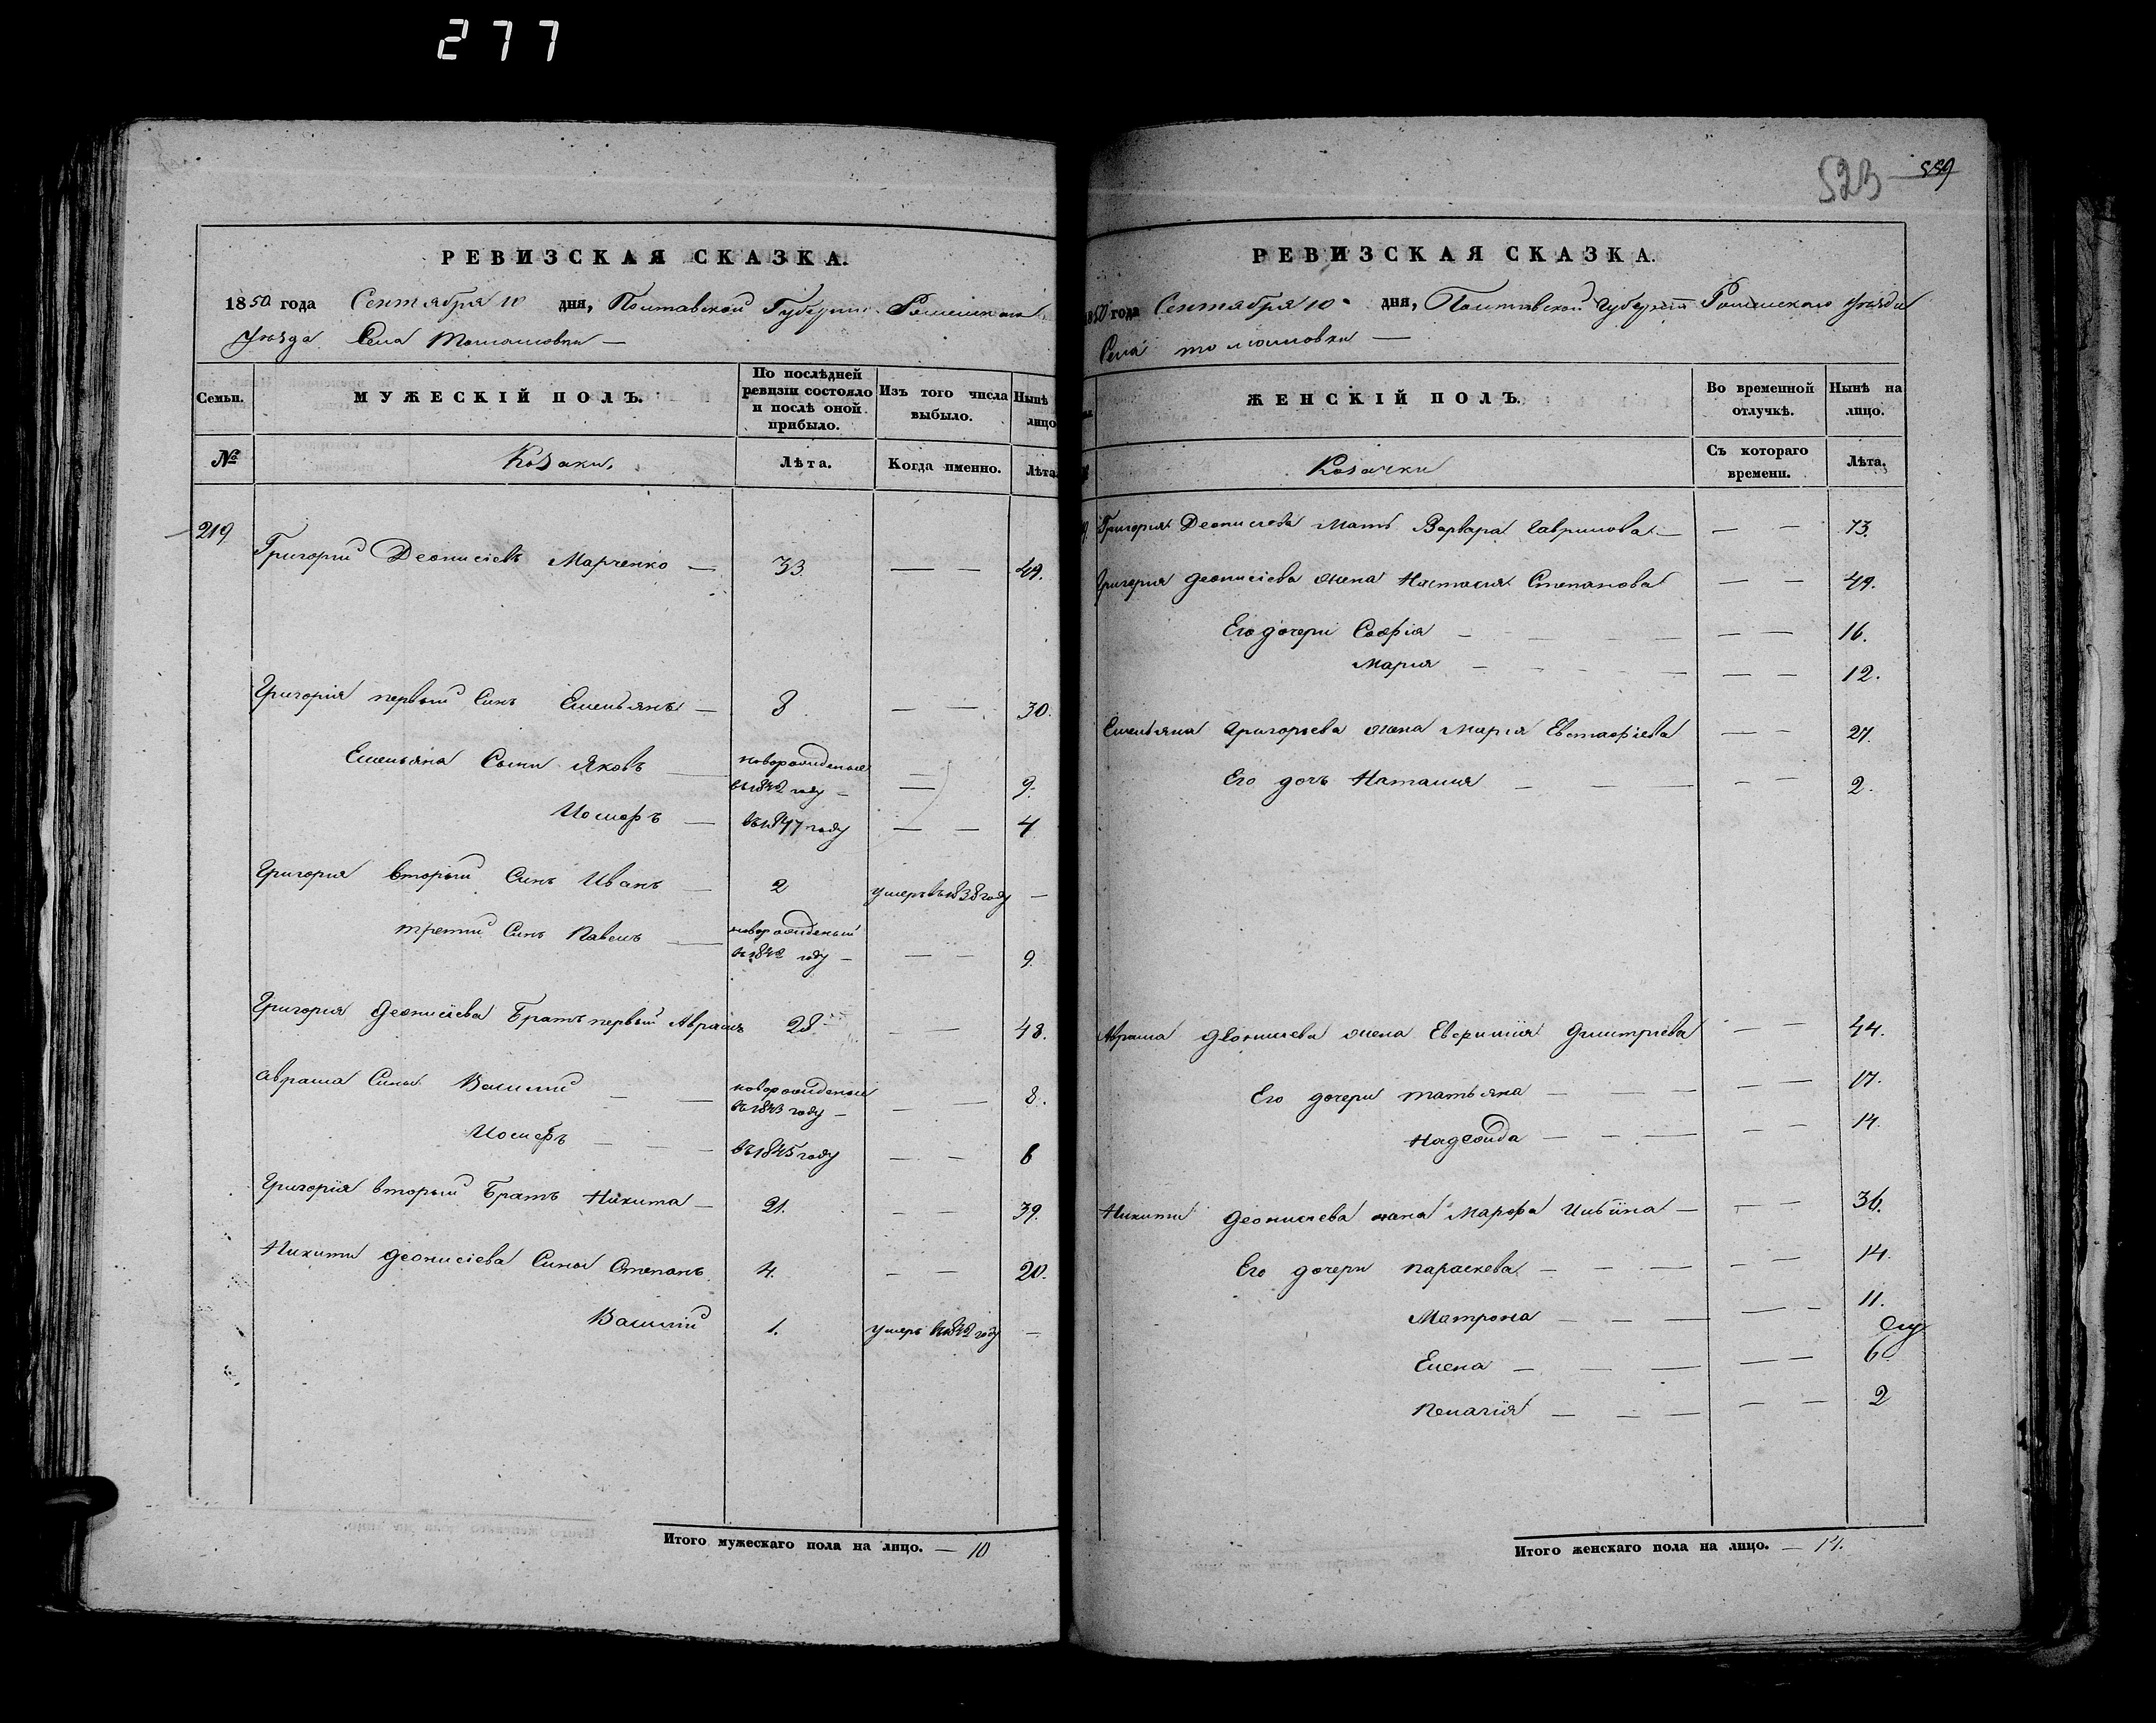 277
523 559
РЕВИЗСКАЯ СКАЗКА.
1850 года Сентября 10 дня, Полтавской Губернии Роменского
Уѣзда Села Толошовки —
Семьи. МУЖЕСКІЙ ПОЛЪ. По послѣдней ревизіи состояло и послѣ оной прибыло. Изъ того числа выбыло. Нынѣ лицо
№ Козаки. Лѣта. Когда именно. Лѣта
219
Григорий Деонисіевъ Марченко — 33. — — 49.
Григорія первый Синъ Емельянъ — 8 — — 30.
Емельяна Сыни Яковъ — новорожденые въ 1842 году — — 9.
Иосифъ — въ 1847 году — — 4
Григория вторый Синъ Иванъ — 2 умеръ въ 1838 году —
третий Синъ Павелъ — новорожденый въ 1842 году — — — 9.
Григория Деонисіева Братъ первый Аврамъ 28 — — 48.
Аврама Сины Василий — — новорожденые въ 1843 году — — — 8.
Иосифъ — — — въ 1845 году — — 6
Григорія вторый Братъ Никита — 21. — — 39.
Никити Деонисіева Сины Степанъ 4. — — 20.
Василий 1. умеръ въ 1842 году —
Итого мужескаго пола на лицо. — 10
РЕВИЗСКАЯ СКАЗКА.
1850 года Сентября 10 дня, Полтавской Губерніи Роменского Уѣзда
Села Толошовки —
ЖЕНСКІЙ ПОЛЪ. Во временной отлучкѣ. Нынѣ на лицо.
Козачки Съ котораго времени. Лѣта.
Григория Деонисіева Мать Варвара Гаврилова — — — 73.
Григория Деонисіева жена Настасия Степанова — — 49.
Его дочери Софія — — — — — 16.
Мария — — — — — — 12.
Емельяна Григорьева жена Мария Евстафіева — — 27.
Его дочь Наталия — — — — — 2.
Аврама Деонисіева жена Евфимия Дмитриева — — 44.
Его дочери Татьяна — — — — — 17.
Надежда — — — — — 14.
Никити Деонисіева жена Марфа Ильина — — — 36.
Его дочери Параскева — — — — — 14.
Матрона — — — — — 11.
Елена — — — — — 6
Пелагія — — — — — 2
Итого женскаго пола на лицо. — 14.